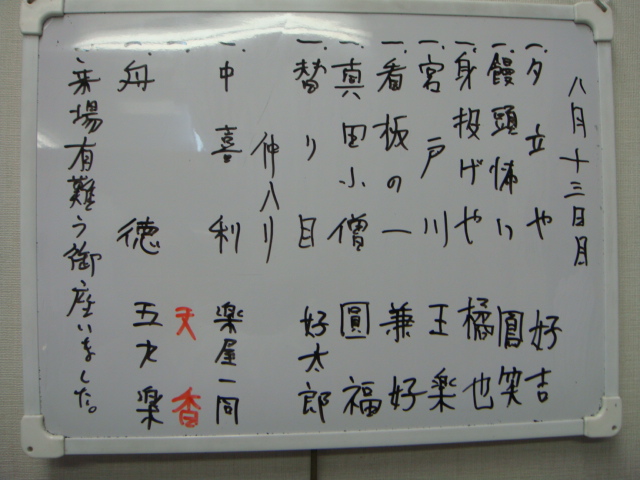 八月十三日目
一、夕立や 好吉
一、饅頭怖い 鳳笑
一、身投げや 橘也
一、宮戸川 王楽
一、看板の一 兼好
一、真田小僧 圓福
一、替り目 好太郎
仲入り
一、中喜利 楽屋一同
一、 天香
一、舟徳 五九楽
来場有難う御座いました。